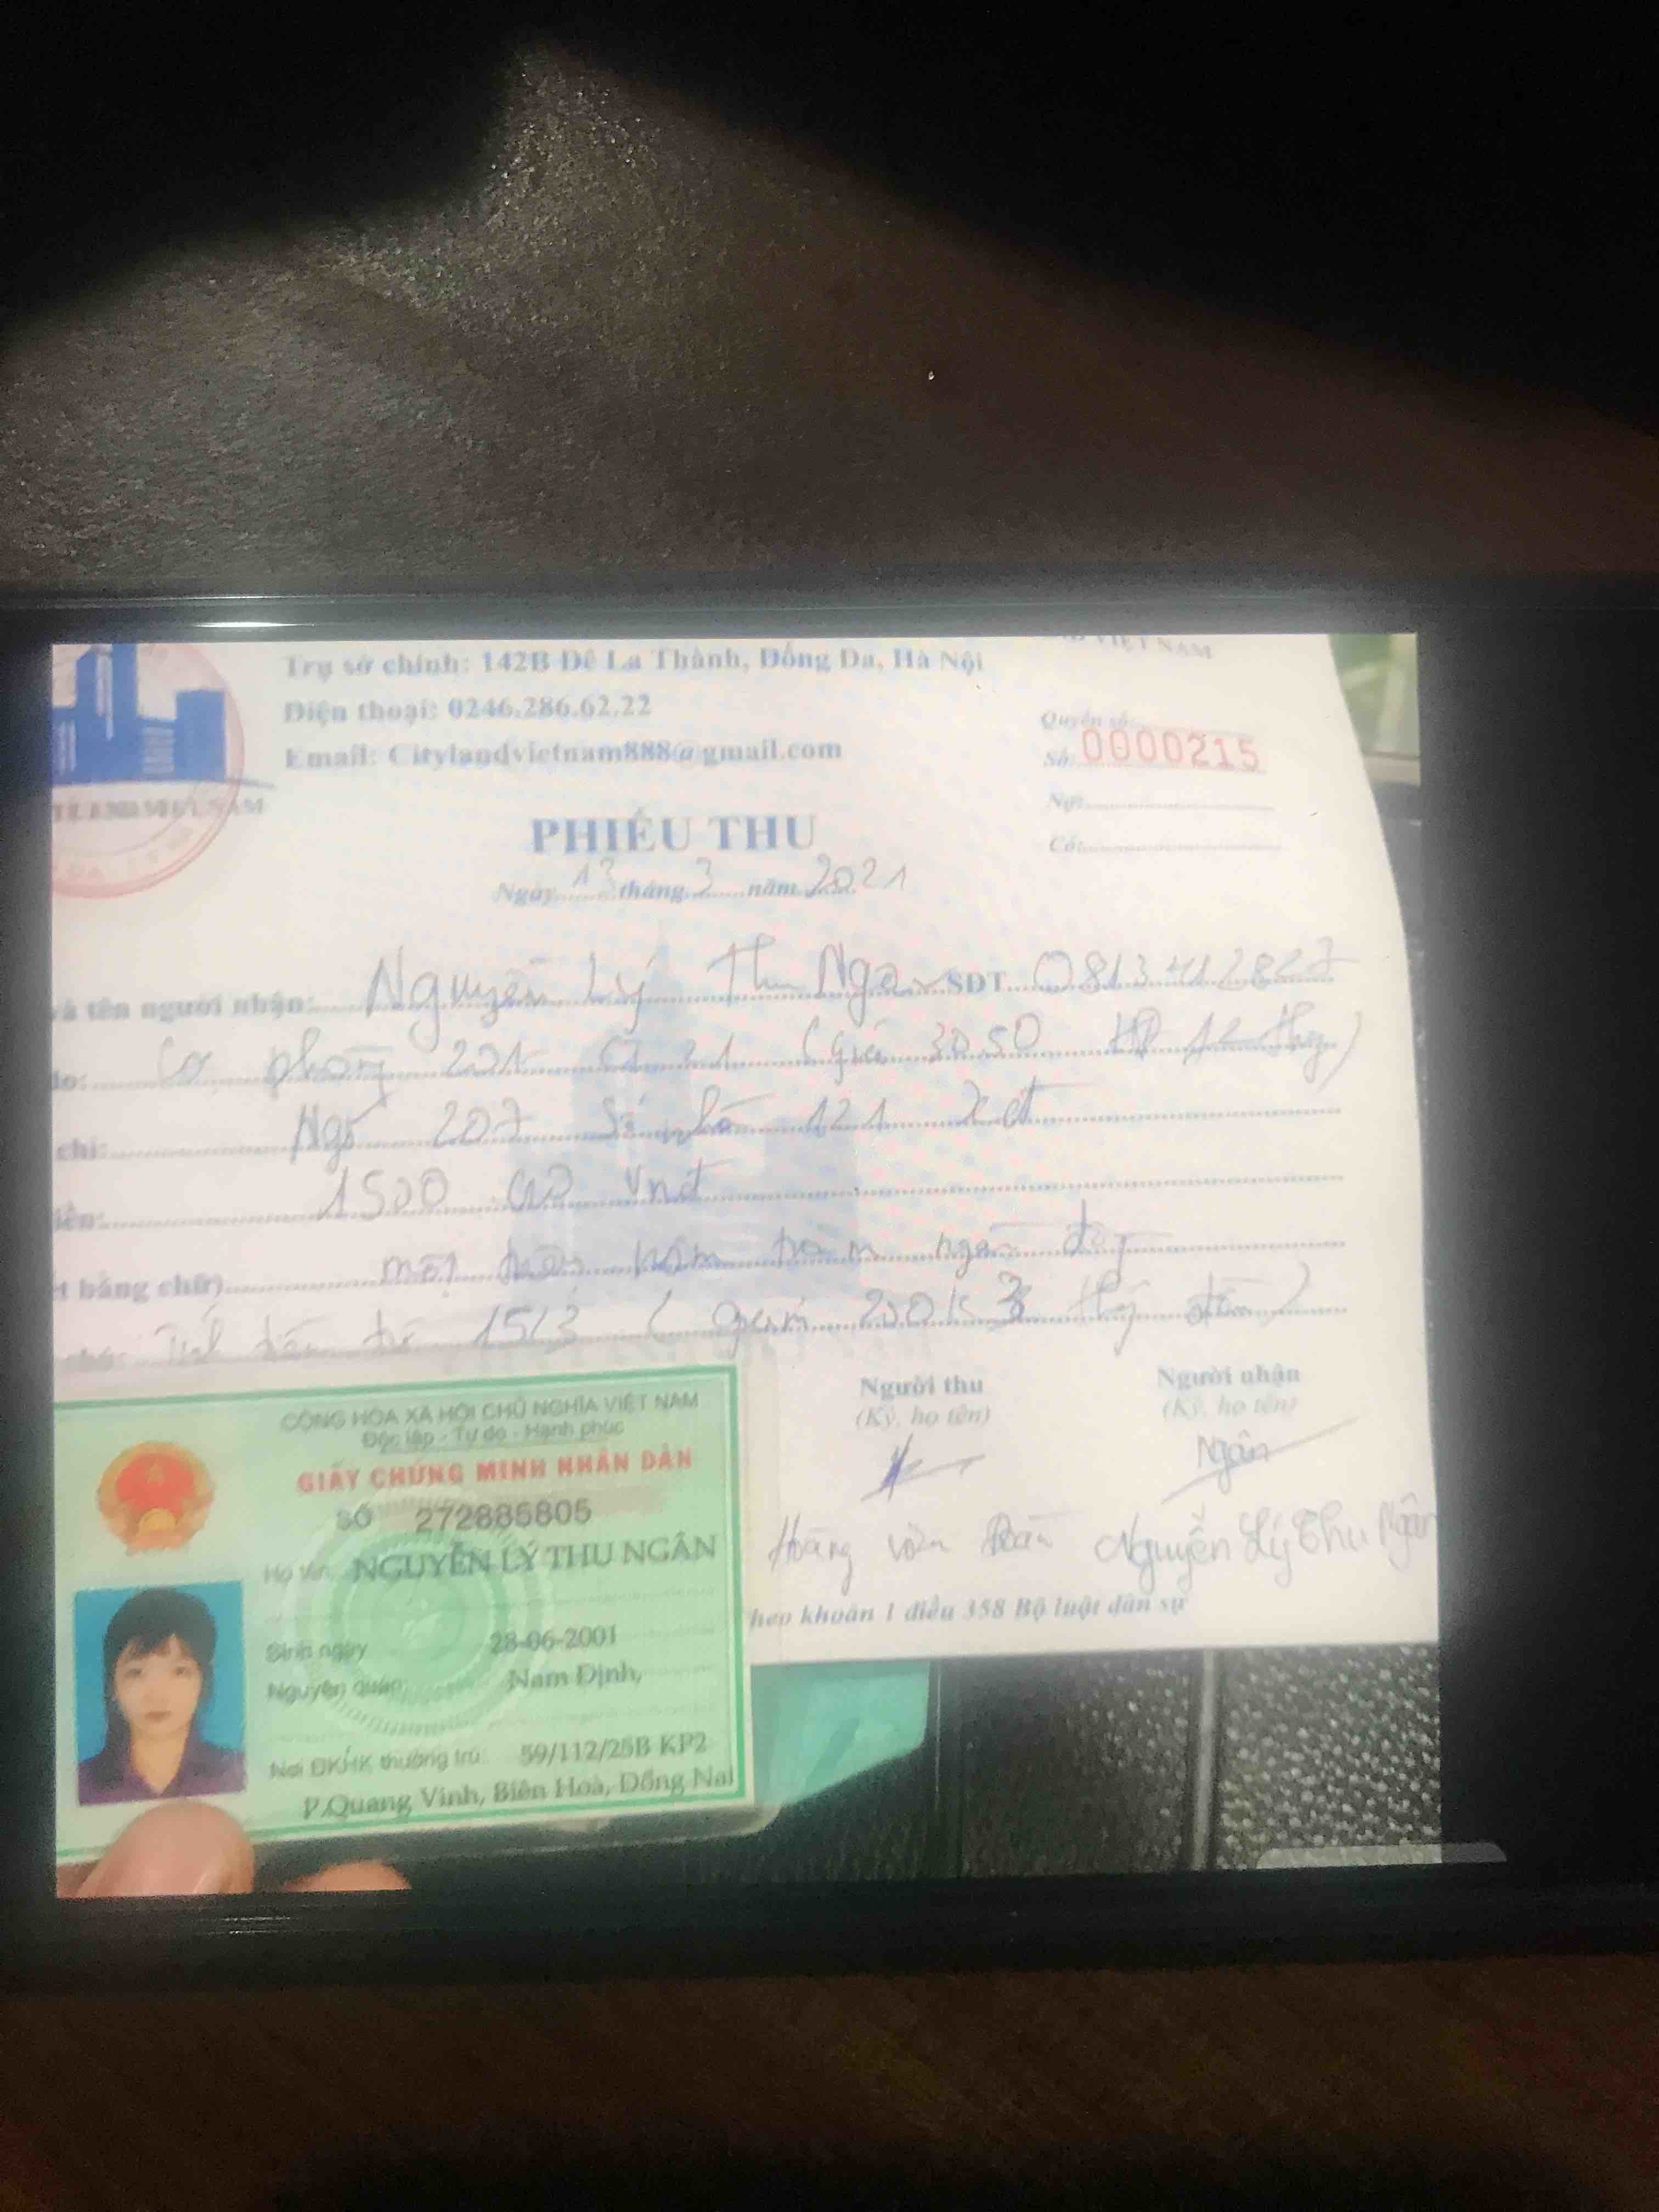 VIỆT NAM
Trụ sở chính: 142B Đê La Thành, Đống Đa, Hà Nội
Điện thoại: 0246.286.62.22
Email: Citylandvietnam888@gmail.com
Quyển số:
Số: 0000215
Nợ:
Có:
PHIẾU THU
Ngày 13 tháng 3 năm 2021
và tên người nhận: Nguyễn Lý Thu Ngân SĐT
do: Cọc phòng 201 (giá 3050 HĐ 12 thg)
chỉ: Ngõ 207 Số nhà 121 Xđ
tiền: 1500 000 Vnđ
t bằng chữ) một triệu năm trăm ngàn đồng
chú: Tính tiền từ 15/3 (giảm 200k 3 thg đầu)
Người thu
(Ký, họ tên)
Người nhận
(Ký, họ tên)
Ngân
Hoàng văn Nguyễn Lý Thu Ngân
theo khoản 1 điều 358 Bộ luật dân sự
CỘNG HÒA XÃ HỘI CHỦ NGHĨA VIỆT NAM
Độc lập - Tự do - Hạnh phúc
GIẤY CHỨNG MINH NHÂN DÂN
SỐ 272885805
Họ tên: NGUYỄN LÝ THU NGÂN
Sinh ngày 28-06-2001
Nguyên quán: Nam Định,
Nơi ĐKHK thường trú: 59/112/25B KP2
P.Quang Vinh, Biên Hoà, Đồng Nai